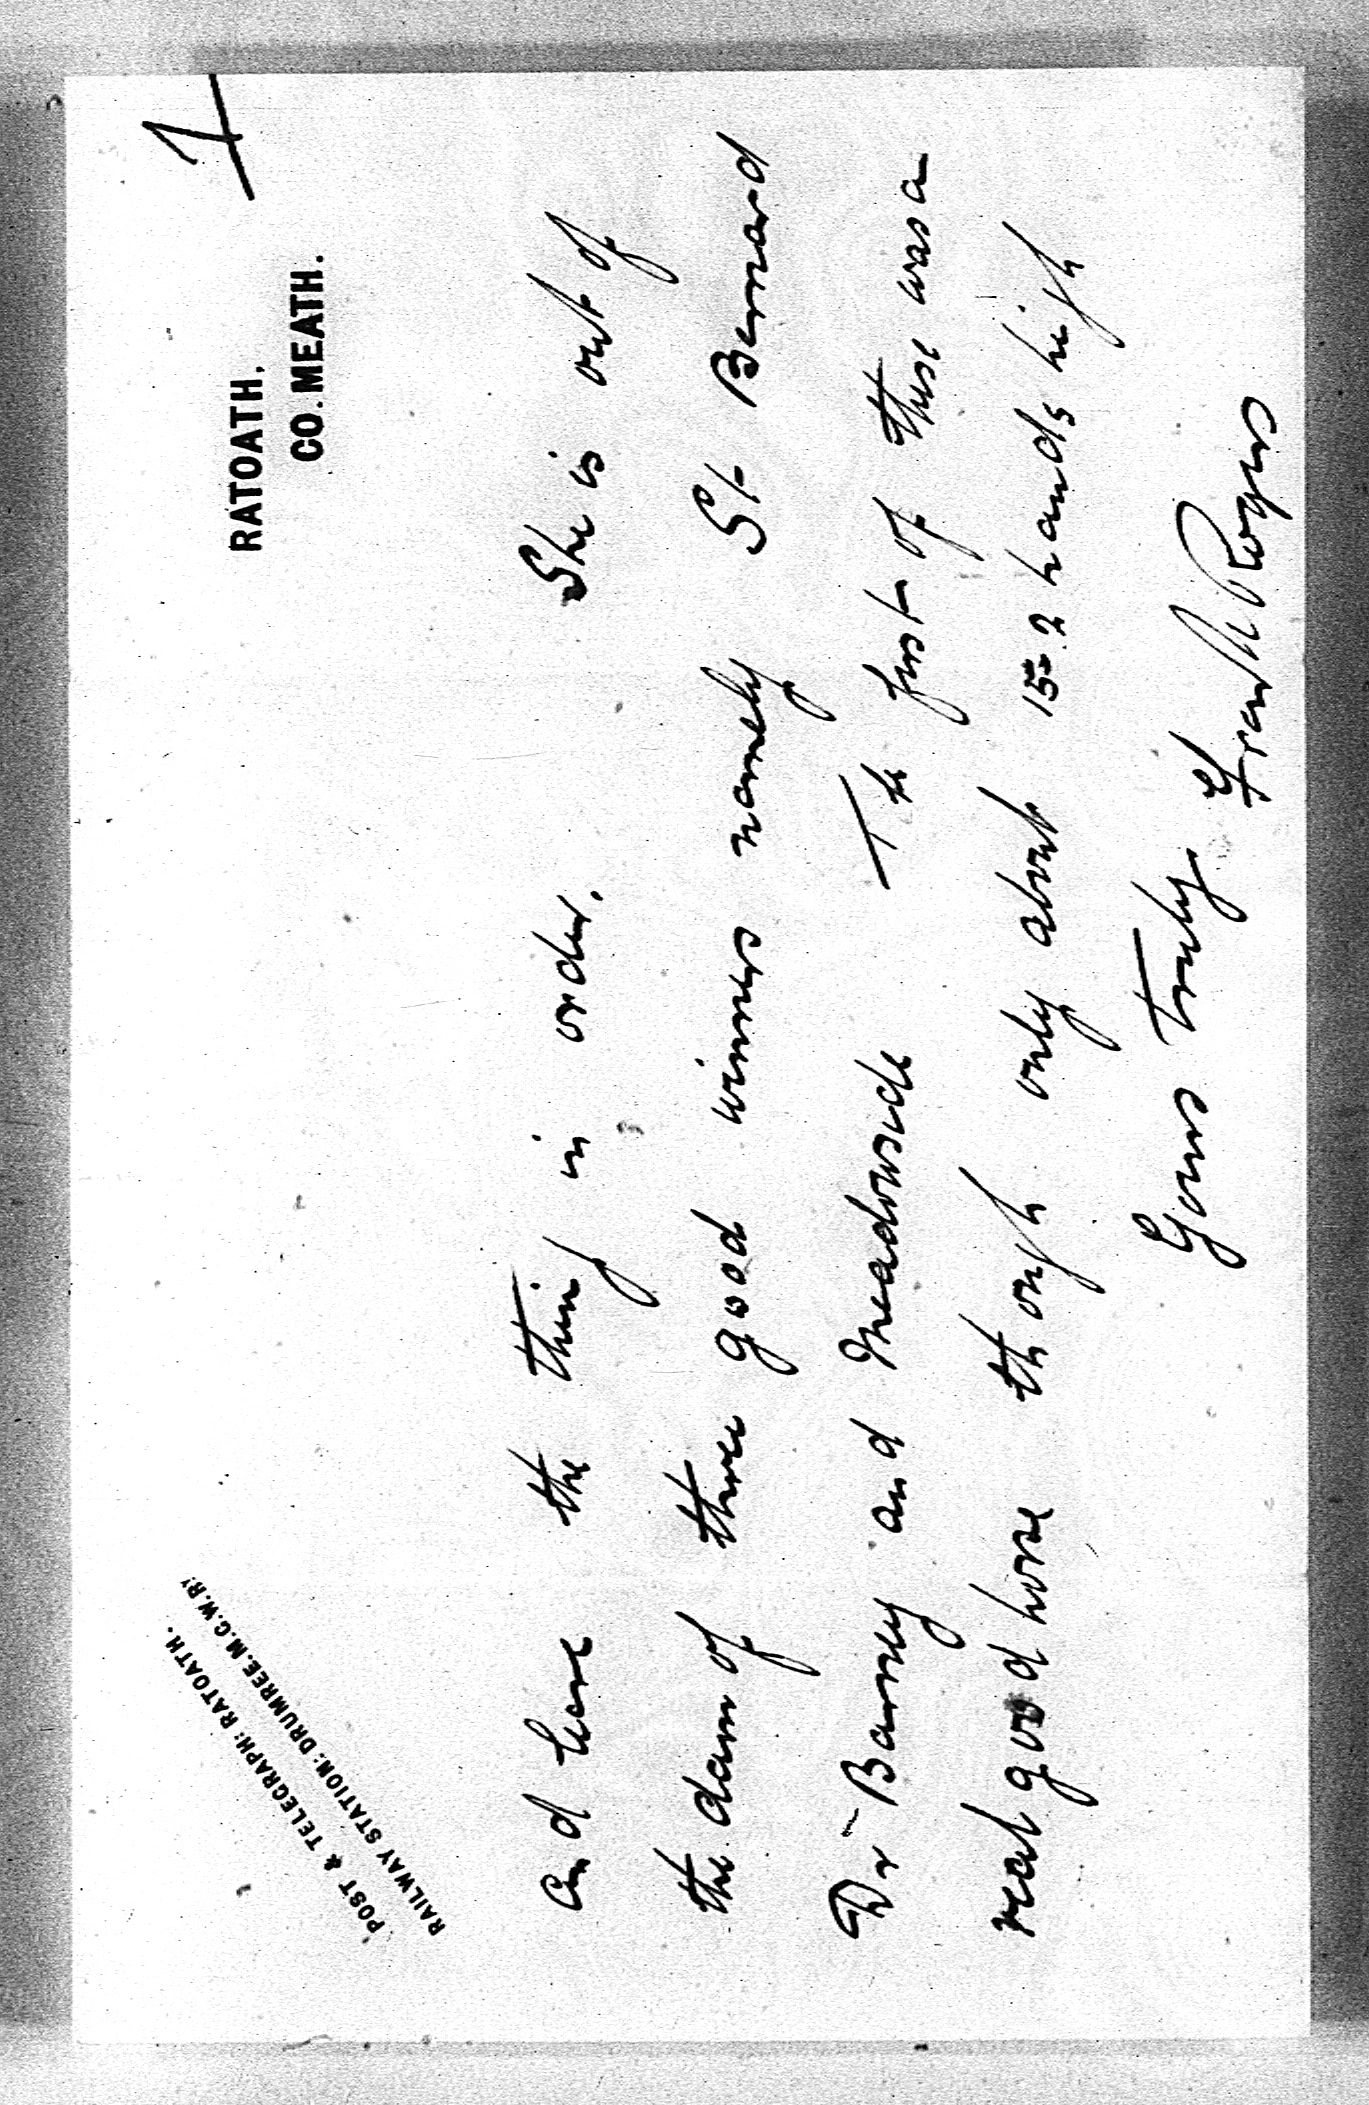 POST & TELEGRAPH: RATOATH.
RAILWAY STATION: DRUMREE. M.G.W.RY.
RATOATH.
CO. MEATH.
and have the thing in order. She is out of
the dam of three good winners namely St Bernard
Dr Barney and Meadowside The first of these was a
real good horse though only about 15.2 hands high
Yours truly
Frank Rogers